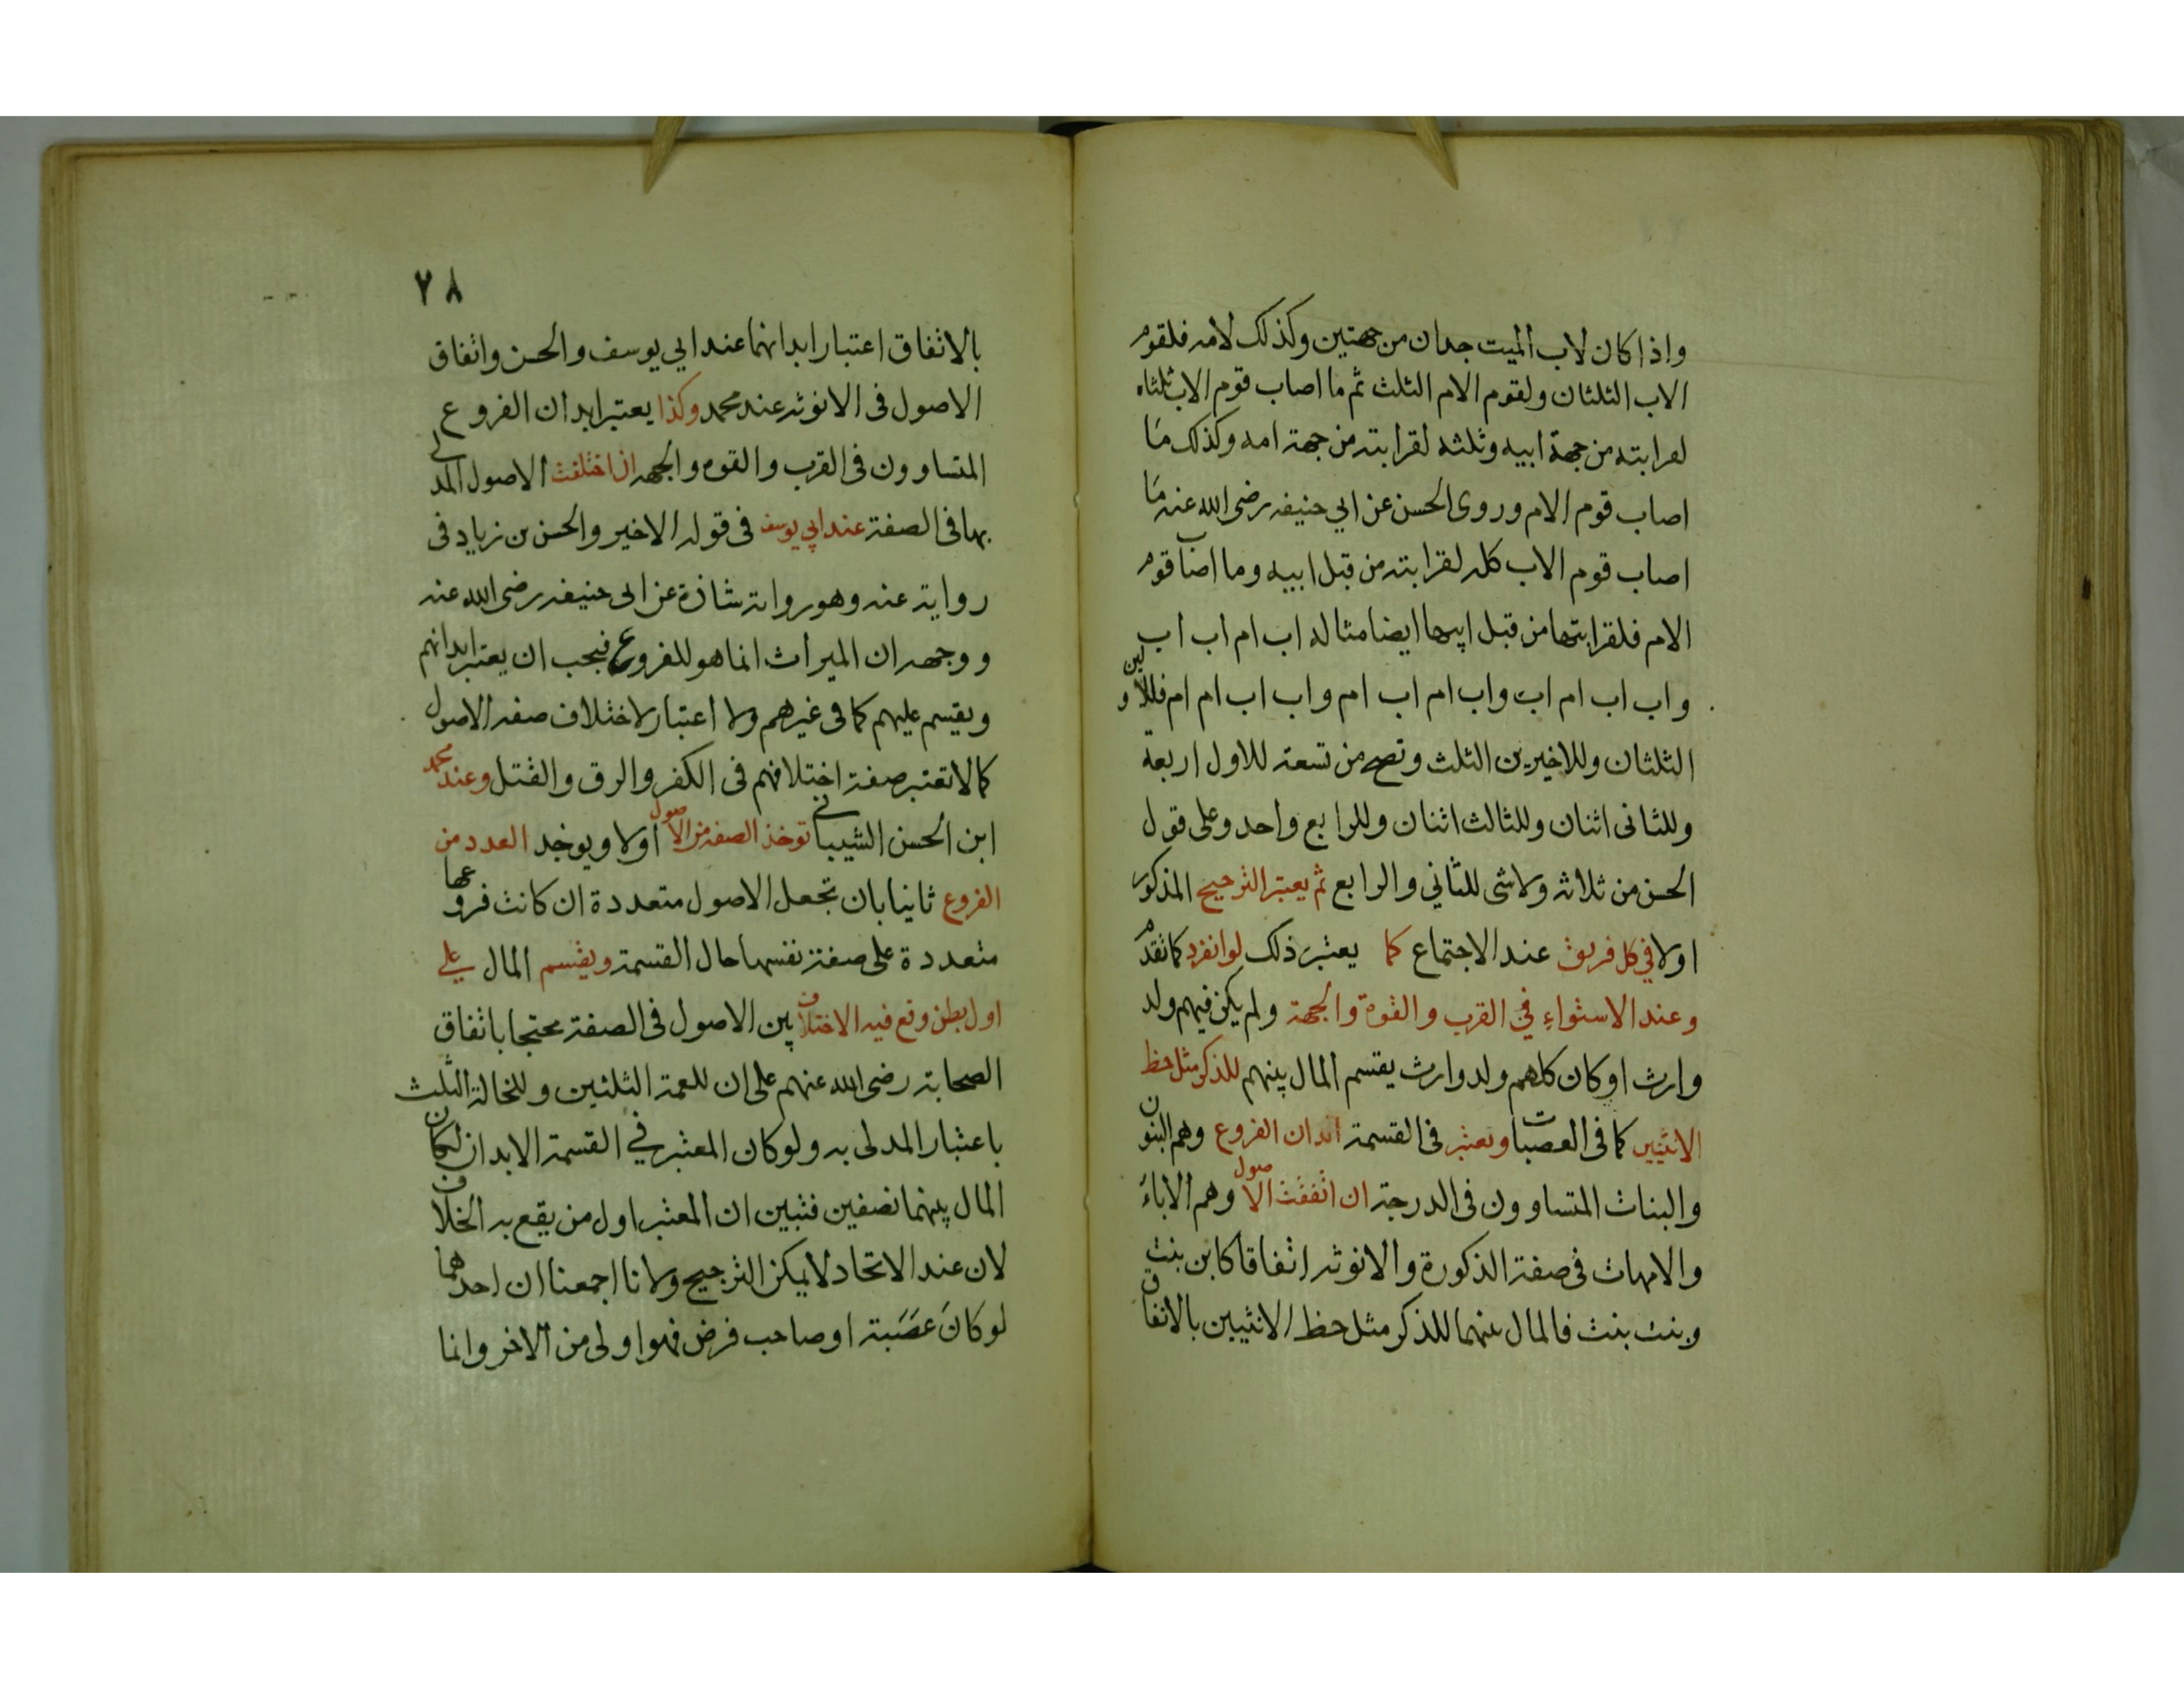 واذا كان لاب الميت جدان من جهتين وكذلك لامه فلقوم
الاب الثلثان ولقوم الام الثلث ثم ما اصاب قوم الاب ثلثاه
لقرابته من جهة ابيه وثلثه لقرابته من جهة امه وكذلك ما
اصاب قوم الام وروى الحسن عن ابي حنيفه رضى الله عنه ما
اصاب قوم الاب كله لقرابته من قبل ابيه وما اصاب قوم
الام فلقرابتها من قبل ابيها ايضا مثاله اب ام اب اب
واب اب ام اب واب ام اب ام واب اب ام ام فللاولين
الثلثان وللاخيرين الثلث وتصح من تسعة للاول اربعة
وللثانى اثنان وللثالث اثنان وللرابع واحد وعلى قول
الحسن من ثلاثه ولا شى للثاني والرابع ثم يعتبر الترجيح المذكور
اولا في كل فريق عند الاجتماع كما يعتبر ذلك لو انفرد كما تقدم
وعند الاستواء في القرب والقوة والجهة ولم يكن فيهم ولد
وارث او كان كلهم ولد وارث يقسم المال بينهم للذكر مثل حظ
الانثيين كما فى العصبات ويعتبر فى القسمة ابدان الفروع وهم البنون
والبنات المتساوون فى الدرجة ان اتفقت الاصول وهم الاباء
والامهات فى صفة الذكورة والانوثه اتفاقا كابن بنت
وبنت بنت فالمال بينهما للذكر مثل حظ الانثيين بالاتفاق
٧٨
بالاتفاق اعتبار ابدانهما عند ابي يوسف والحسن واتفاق
الاصول فى الانوثه عند محمد وكذا يعتبر ابدان الفروع
المتساوون فى القرب والقوه والجهه ان اختلفت الاصول المدلى
بها فى الصفة عند ابي يوسف فى قوله الاخير والحسن بن زياد فى
رواية عنه وهو رواية شاذة عن ابى حنيفه رضى الله عنه
ووجهه ان الميراث انما هو للفروع فيجب ان يعتبر ابدانهم
ويقسم عليهم كما فى غيرهم ولا اعتبار لاختلاف صفه الاصول
كما لا تعتبر صفة اختلافهم فى الكفر والرق والقتل وعند محمد
ابن الحسن الشيبانى توخذ الصفه من الاصول اولا ويوخذ العدد من
الفروع ثانيا بان تجعل الاصول متعددة ان كانت فروعها
متعددة على صفة نفسها حال القسمة ويقسم المال على
اول بطن وقع فيه الاختلاف بين الاصول فى الصفة محتجا باتفاق
الصحابة رضى الله عنهم على ان للعمة الثلثين وللخالة الثلث
باعتبار المدلى به ولو كان المعتبر في القسمة الابدان لكان
المال بينهما نصفين فتبين ان المعتبر اول من يقع به الخلاف
لان عند الاتحاد لا يمكن الترجيح ولانا اجمعنا ان احدهما
لو كان عصبة او صاحب فرض فهو اولى من الاخر وانما